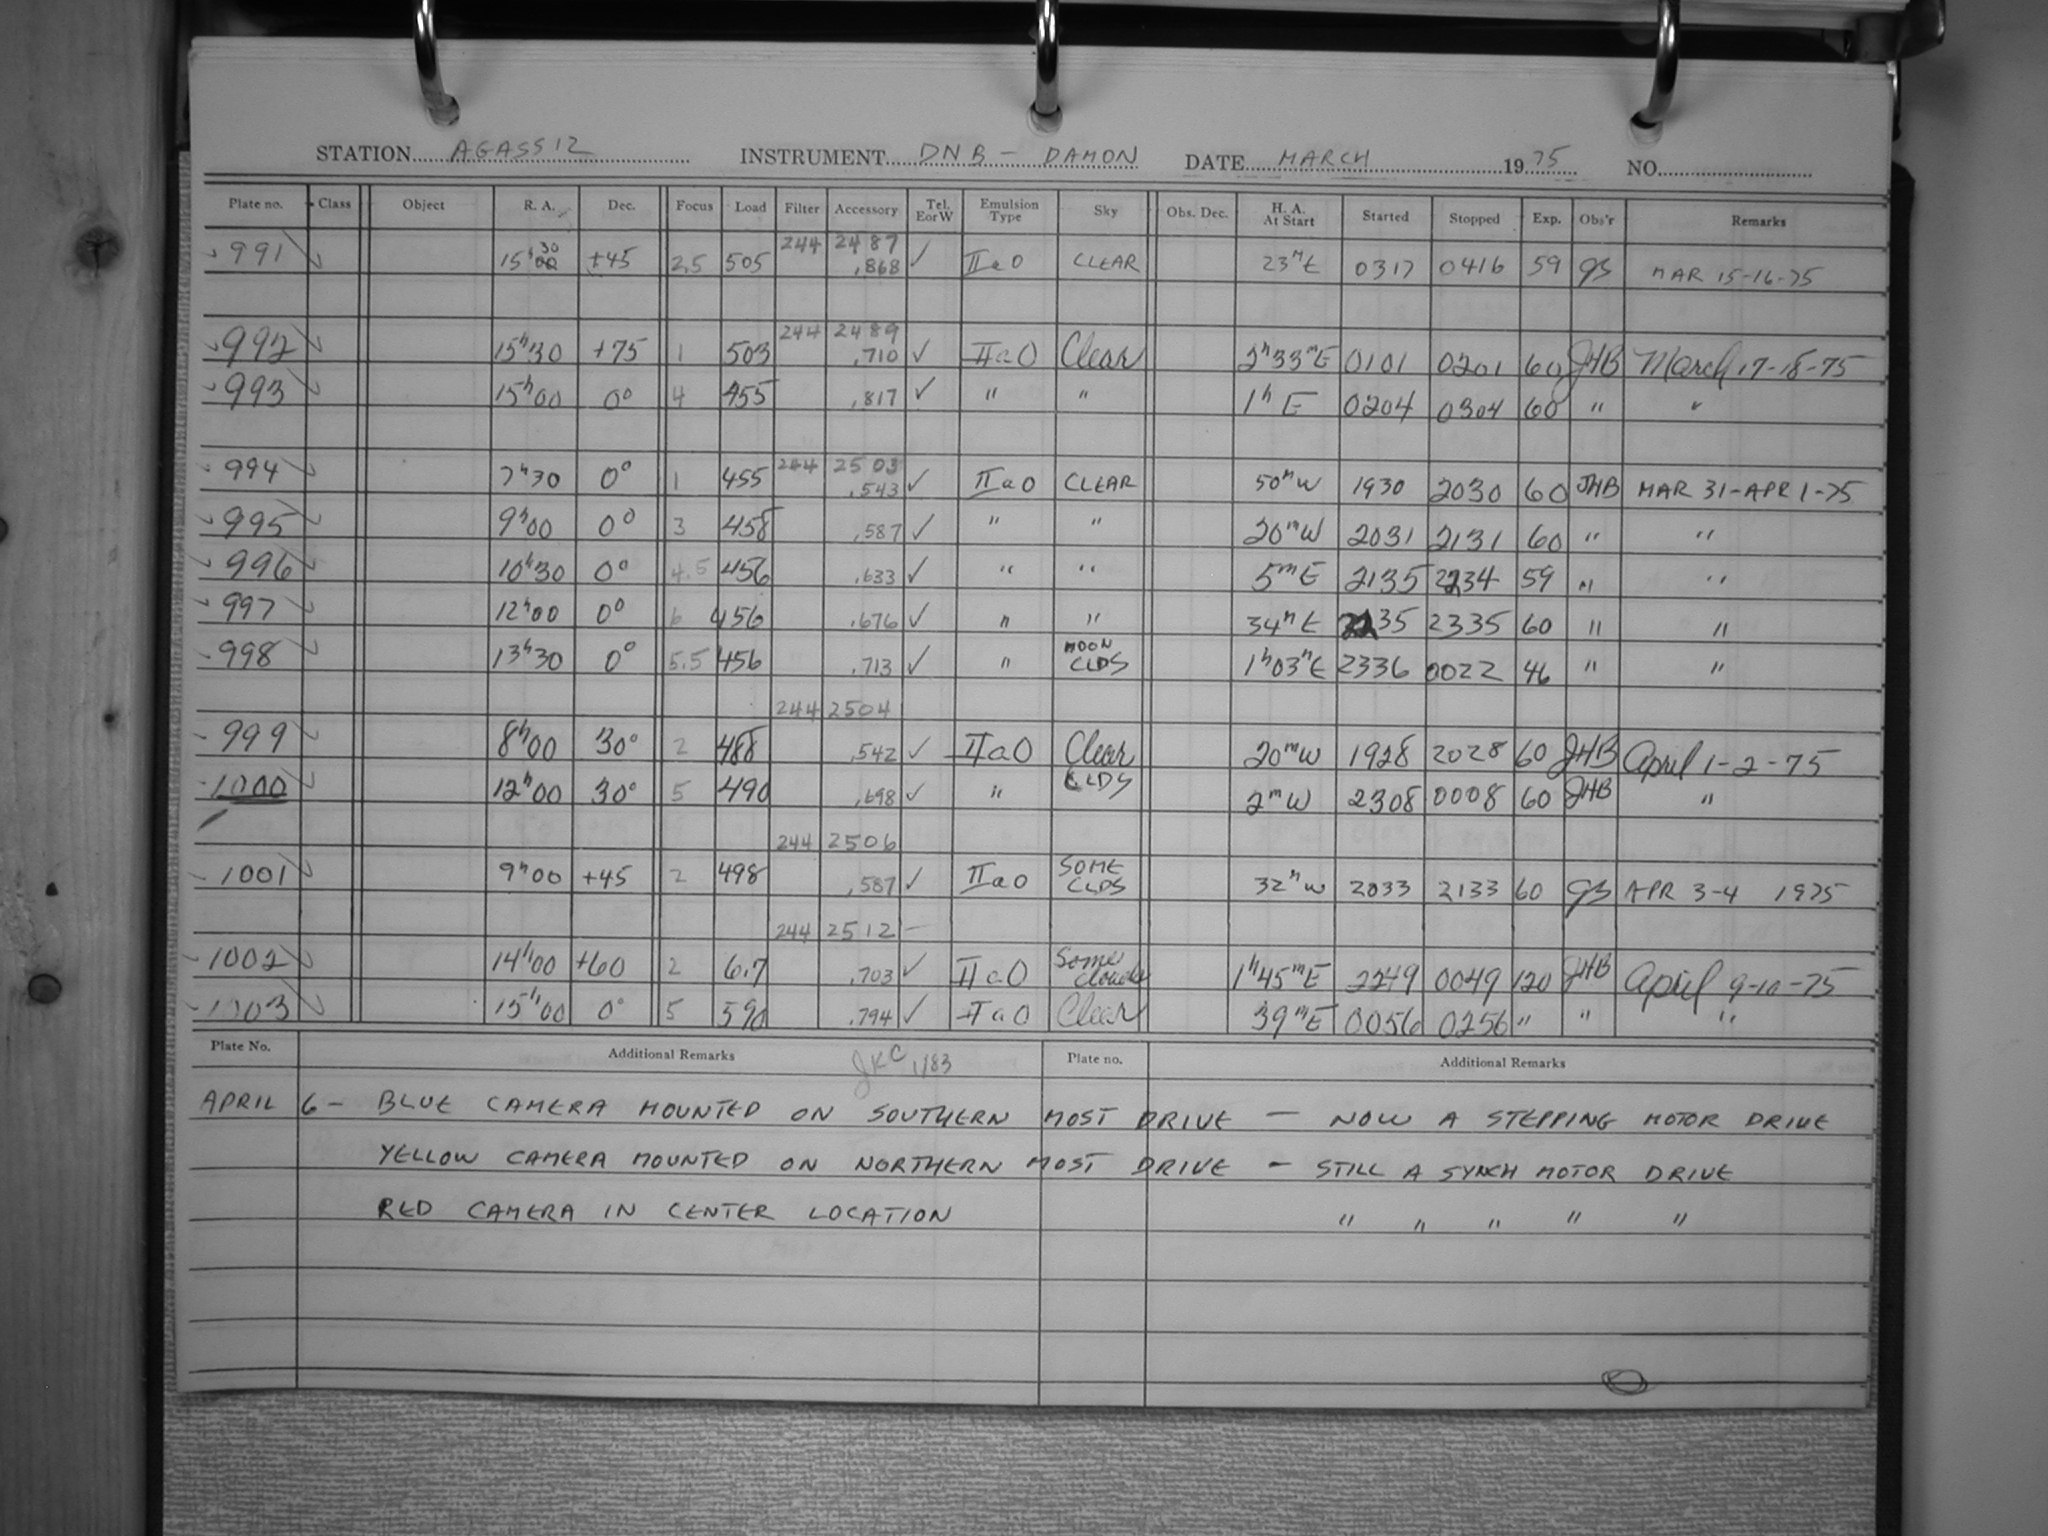 STATION AGASSIZ INSTRUMENT DNB - DAMON DATE MARCH 1975 NO.
Plate no. Class Object R. A. Dec. Focus Load Filter Accessory Tel. E or W Emulsion Type Sky Obs. Dec. H. A. At Start Started Stopped Exp. Obs'r Remarks
244 2487
991 15h30 +45 2.5 505 .868 ✓ IIaO CLEAR 23mE 0317 0416 59 MAR 15-16-75
244 2489
992 15h30 +75 1 503 .710 ✓ IIaO Clear 2h33mE 0101 0201 60 JHB March 17-18-75
993 15h00 0° 4 455 .817 ✓ " " 1h E 0204 0304 60 " "
244 2503
994 7h30 0° 1 455 .543 ✓ IIaO CLEAR 50mW 1930 2030 60 JHB MAR 31-APR 1-75
995 9h00 0° 3 458 .587 ✓ " " 20mW 2031 2131 60 " "
996 10h30 0° 4.5 456 .633 ✓ " " 5mE 2135 2234 59 " "
997 12h00 0° 6 456 .676 ✓ " " 34mE 2235 2335 60 " "
998 13h30 0° 5.5 456 .713 ✓ " MOON CLDS 1h03mE 2336 0022 46 " "
244 2504
999 8h00 30° 2 488 .542 ✓ IIaO Clear 20mW 1928 2028 60 JHB April 1-2-75
1000 12h00 30° 5 490 .698 ✓ " CLDS 2mW 2308 0008 60 JHB "
244 2506
1001 9h00 +45 2 498 .587 ✓ IIaO SOME CLDS 32mW 2033 2133 60 APR 3-4 1975
244 2512 —
1002 14h00 +60 2 6.7 .703 ✓ IIaO Some Clouds 1h45mE 2249 0049 120 JHB April 9-10-75
1003 15h00 0° 5 590 .794 ✓ IIaO Clear 39mE 0056 0256 " " "
Plate No. Additional Remarks JKC 1/83 Plate no. Additional Remarks
APRIL 6 - BLUE CAMERA MOUNTED ON SOUTHERN MOST DRIVE — NOW A STEPPING MOTOR DRIVE
YELLOW CAMERA MOUNTED ON NORTHERN MOST DRIVE - STILL A SYNCH MOTOR DRIVE
RED CAMERA IN CENTER LOCATION " " " " "